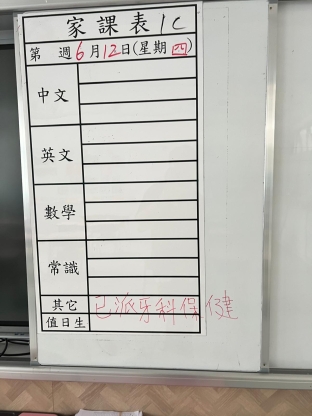 家課表 1C
第 週 6月12日(星期四)
中文
英文
數學
常識
其它 已派牙科保健
值日生